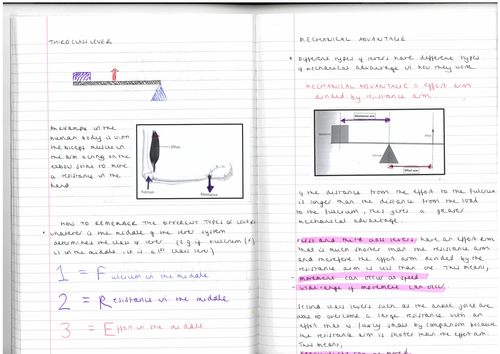 THIRD CLASS LEVER
An example in the
human body is with
the biceps muscle in
the arm acting on the
elbow joint to move
a resistance in the
hand.
Effort
Fulcrum
Resistance
HOW TO REMEMBER THE DIFFERENT TYPES OF LEVERS
whatever is the middle of the lever system
determines the class of lever (e.g. if fulcrum (F)
is in the middle, it is a 1st class lever)
1 = Fulcrum in the middle
2 = Resistance in the middle
3 = Effort in the middle
MECHANICAL ADVANTAGE
Different types of levers have different types
of mechanical advantage in how they work.
MECHANICAL ADVANTAGE = effort arm
divided by resistance arm
Resistance arm
Effort
Effort arm
If the distance from the effort to the fulcrum
is longer than the distance from the load
to the fulcrum, this gives a greater
mechanical advantage.
First and third class levers have an effort arm
that is much shorter than the resistance arm
and therefore the effort arm divided by the
resistance arm is less than one. This means;
- movement can occur at speed
- wide range of movement can occur.
Second class levers such as the ankle joint are
able to overcome a large resistance with an
effort that is fairly small by comparison because
the resistance arm is shorter than the effort arm.
This means,